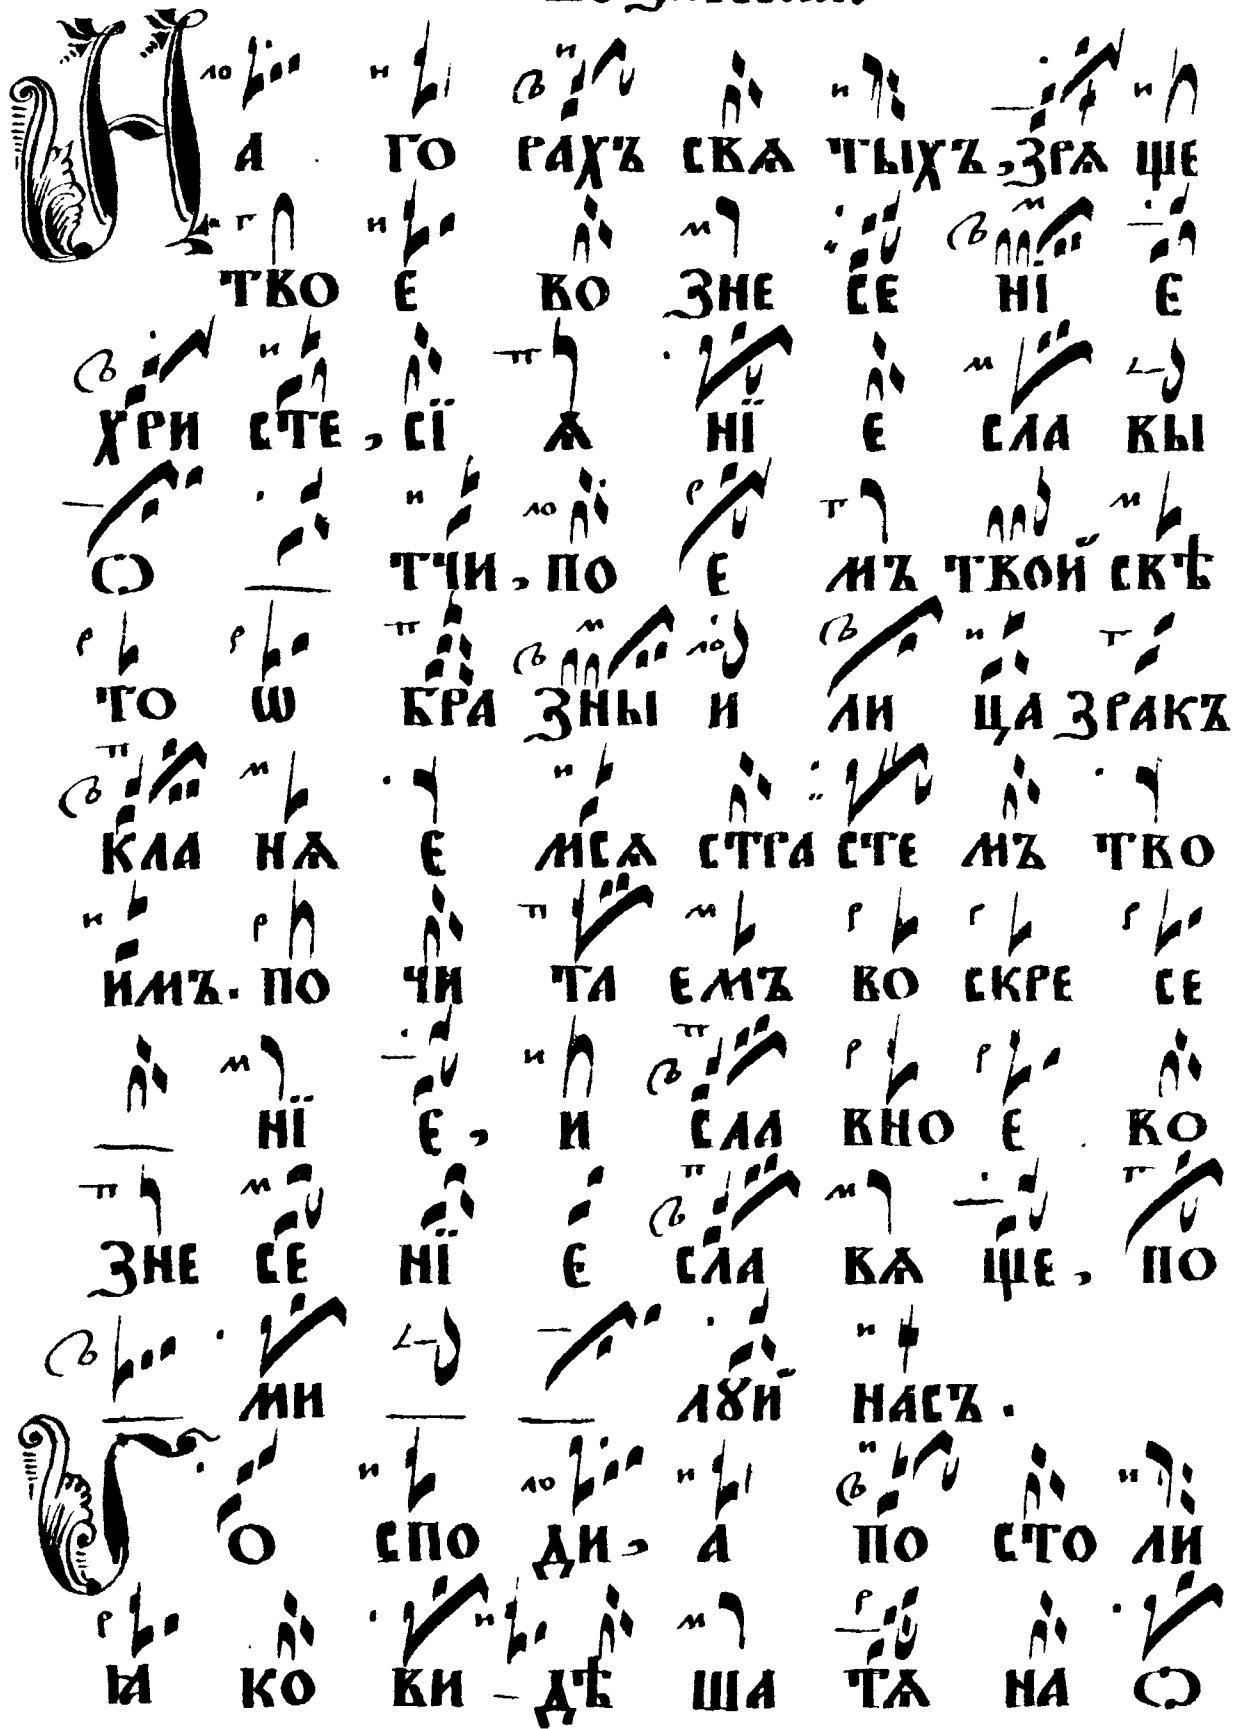 На горахъ свѧтыхъ, зрѧще
твое вознесенїе
христе, сїѧнїе славы
ѻтчи, поемъ твой свѣ
то ѡбразный лица зракъ
кланѧемсѧ страстемъ тво
имъ. почитаемъ воскресе
нїе, и славное во
знесенїе славѧще, по
милꙋй насъ.
Господи, апостоли
ꙗко видѣша тѧ на ѻ